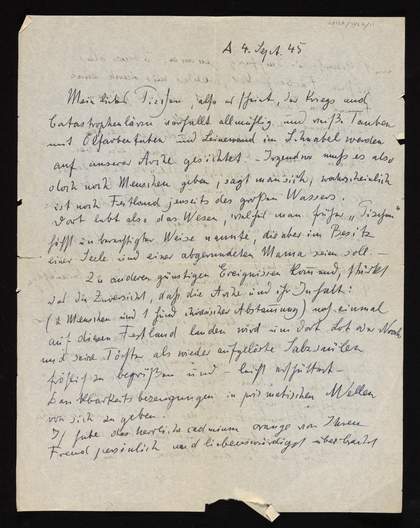 A 4. Sept. 45
Mein liebes Tierchen, also es scheint, der Kriegs und
Catastrophenlärm verfällt allmählig und weiße Tauben
mit Ölfarbentuben und Leinewand im Schnabel werden
auf unserer Arche gesichtet – Irgendwo muß es also
doch noch Menschen geben, sagt man sich, wahrscheinlich
ist noch Festland jenseits des großen Wassers.
Dort lebt also das Wesen, welches man früher
in Weise nannte, die aber im Besitz
einer Seele und einer abgerundeten Mama sein soll –
Zu anderen günstigen Ereignissen kommend, stärkt
das die Zuversicht, daß die Arche und ihr Inhalt:
(2 Menschen und 1 Abstammung) noch einmal
auf diesem Festland landen wird um dort Lot oder Noah
und seine Töchter als wieder aufgelöste Salzsäulen
fröhlich zu begrüßen und – leicht erschüttert –
Dankbarkeitsbezeugungen in prismatischen Wellen
von sich zu geben.
Ich habe das herrliche cadmium orange von Ihrem
Freund persönlich und liebenswürdigst überbracht